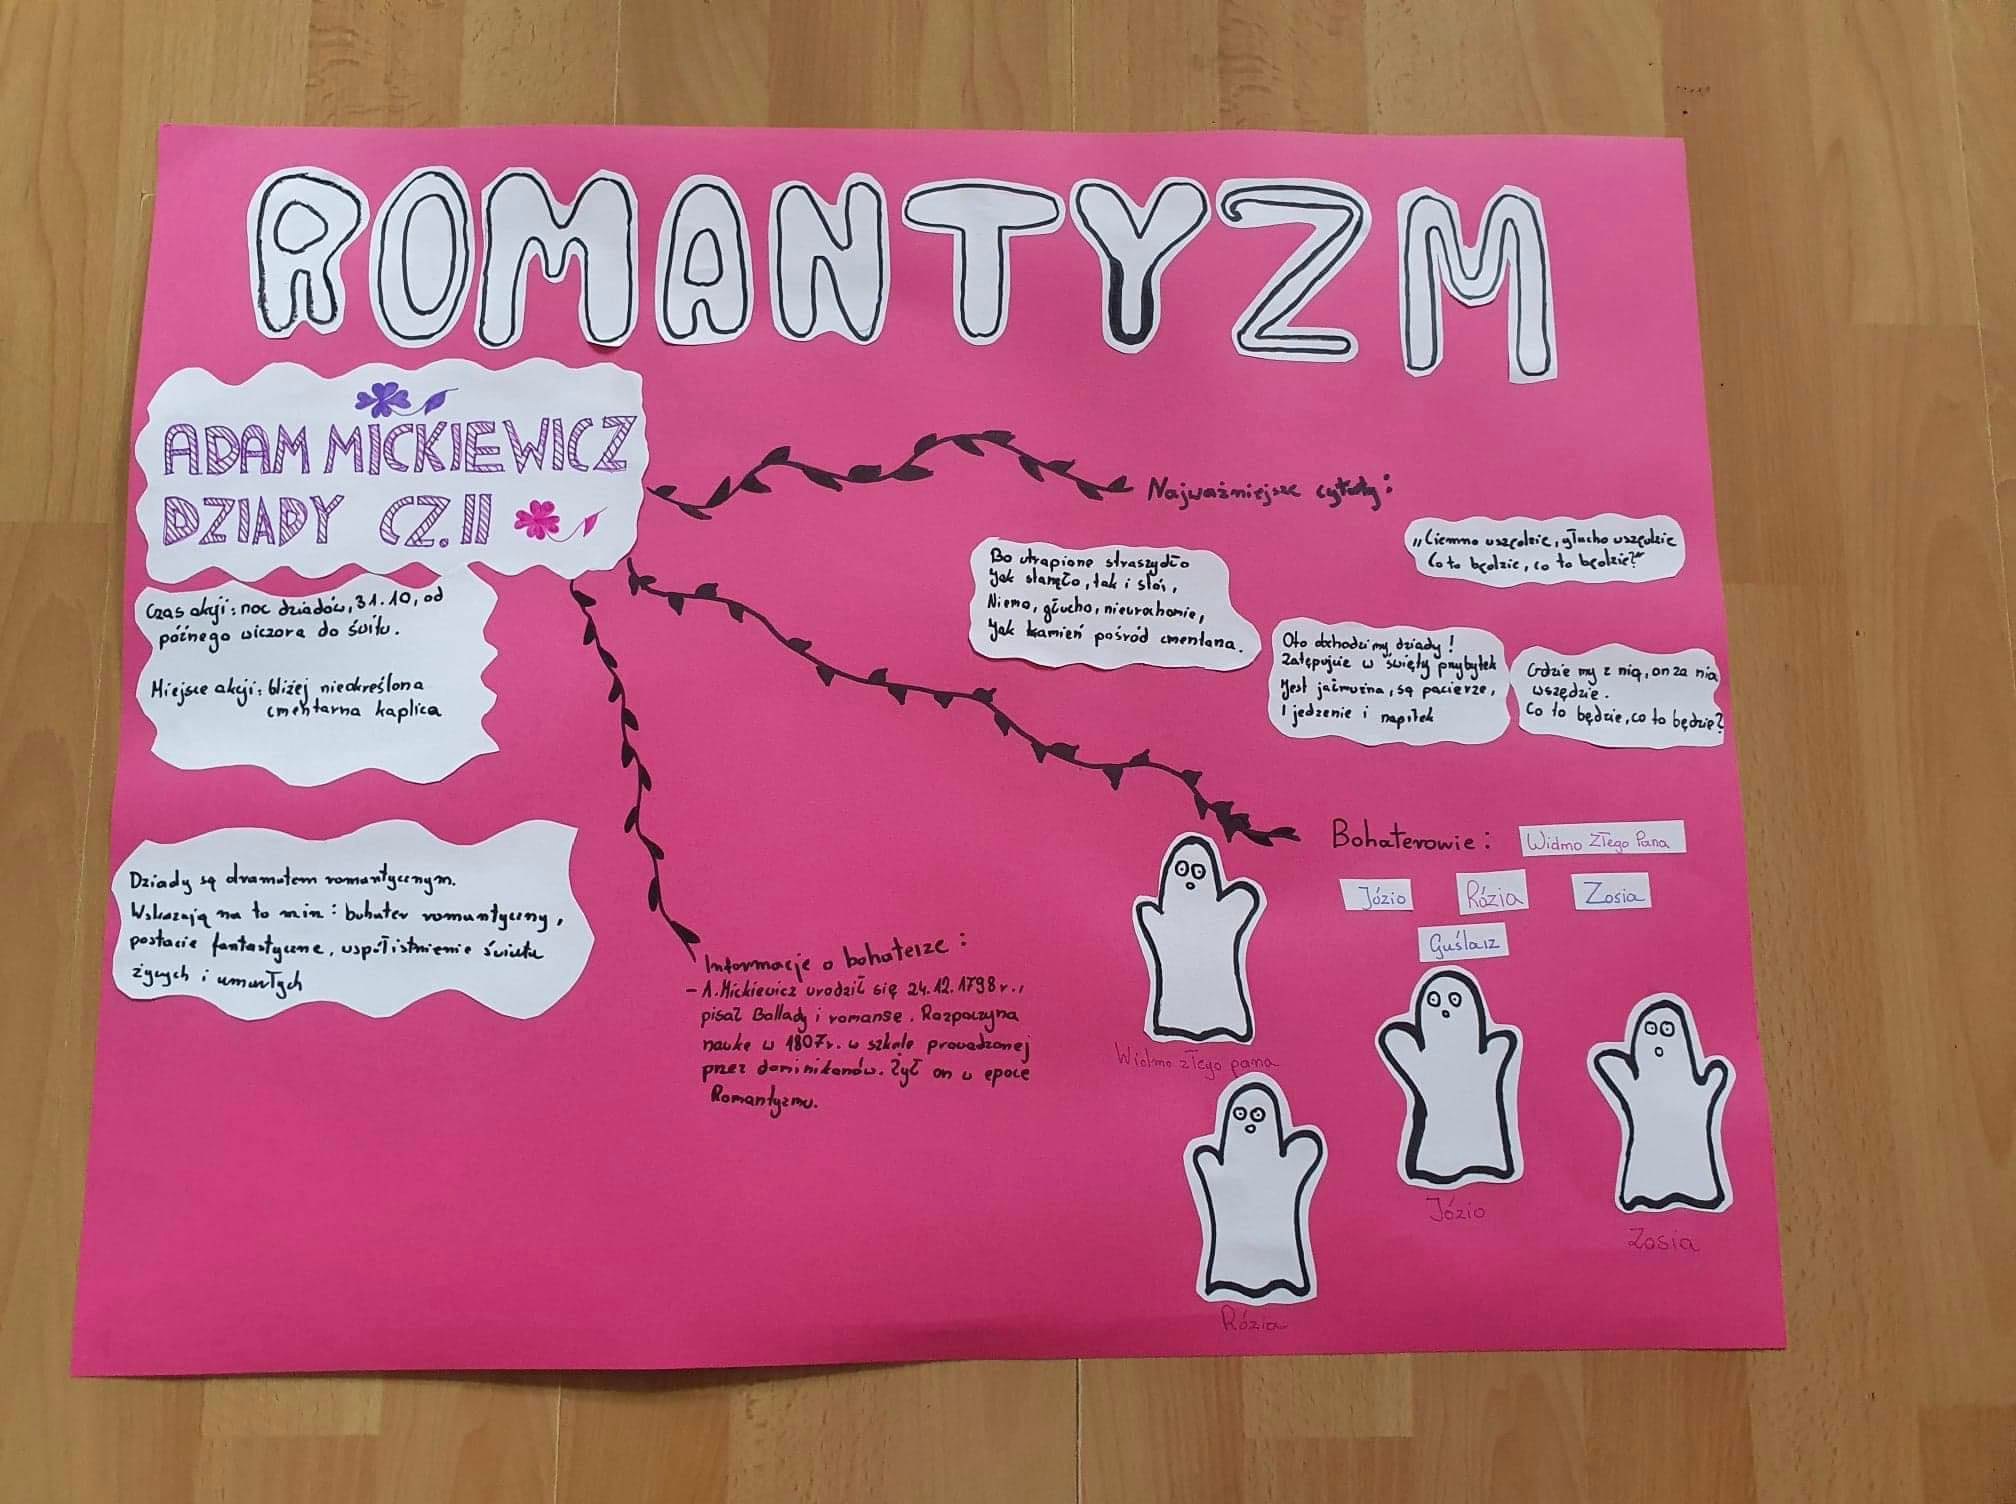 ROMANTYZM
ADAM MICKIEWICZ
DZIADY CZ. II
Czas akcji: noc dziadów, 31.10, od
późnego wiczora do świtu.
Miejsce akcji: bliżej nieokreślona
cmentarna kaplica
Dziady są dramatem romantycznym.
Wskazają na to min: bohater romantyczny,
postacie fantastyczne, współistnienie świata
żywych i umarłych
Najważniejsze cytaty:
„Ciemno wszędzie, głucho wszędzie
Co to będzie, co to będzie?"
Bo utrapione straszydło
Jak stanęło, tak i stoi,
Niemo, głucho, nieruchomie,
Jak kamień pośród cmentarza.
Oto obchodzimy dziady!
Zstępujcie w święty przybytek
Jest jałmużna, są pacierze,
I jedzenie i napitek
Gdzie my z nią, on za nią
wszędzie.
Co to będzie, co to będzie?
Bohaterowie: Widmo Złego Pana
Józio Rózia Zosia
Guślarz
Informacje o bohaterze:
- A.Mickiewicz urodził się 24.12.1798r.,
pisał Ballady i romanse. Rozpoczyna
nauke w 1807r. w szkole prowadzonej
przez dominikanów. Żył on w epoce
Romantyzmu.
Widmo złego pana
Józio
Zosia
Rózia